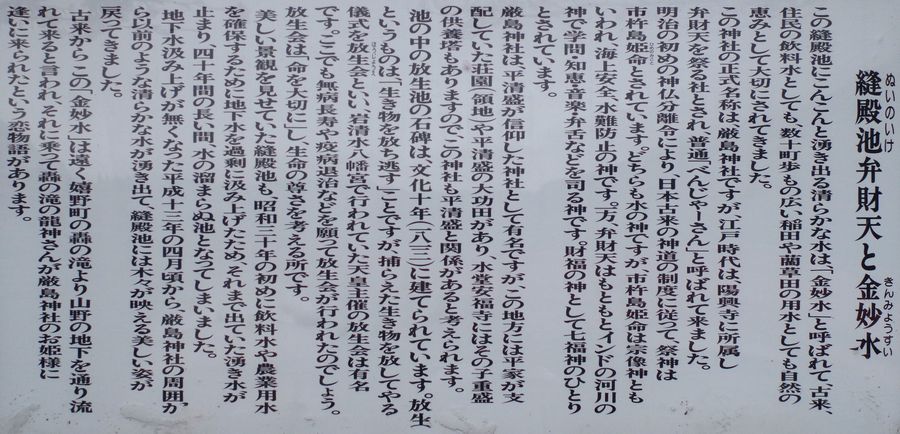 縫殿池弁財天と金妙水
ぬいのいけ
きんみょうすい
この縫殿池にこんこんと湧き出る清らかな水は、「金妙水」と呼ばれて、古来、
住民の飲料水としても、数十町歩もの広い稲田や藺草田の用水としても自然の
恵みとして大切にされてきました。
この神社の正式名称は厳島神社ですが、江戸時代は陽興寺に所属し
弁財天を祭る社とされ、普通「べんじゃーさん」と呼ばれて来ました。
明治の初めの神仏分離令により、日本古来の神道の制度に従って、祭神は
市杵島姫命とされています。どちらも水の神ですが、市杵島姫命は宗像神とも
いわれ、海上安全、水難防止の神です。一方、弁財天はもともとインドの河川の
神で学問・知恵・音楽・弁舌などを司る神です。財福の神として七福神のひとり
とされています。
厳島神社は、平清盛が信仰した神社として有名ですが、この地方には平家が支
配していた荘園(領地)や平清盛の大功田があり、水堂安福寺にはその子重盛
の供養塔もありますので、この神社も平清盛と関係があると考えられます。
池の中の放生池の石碑は、文化十年(一八一三)に建てられています。放生
というものは、「生き物を放ち逃す」ことですが、捕らえた生き物を放してやる
儀式を放生会といい、岩清水八幡宮で行われていた天皇主催の放生会は有名
です。ここでも無病長寿や疫病退治などを願って放生会が行われたのでしょう。
放生会は「命を大切に」し、生命の尊さを考える所です。
美しい景観を見せていた縫殿池も、昭和三十年の初めに飲料水や農業用水
を確保するために地下水を過剰に汲み上げたため、それまで出ていた湧き水が
止まり、四十年間の長い間、水の溜まらぬ池となってしまいました。
地下水汲み上げが無くなった平成十三年の四月頃から、厳島神社の周囲か
ら以前のような清らかな水が湧き出て、縫殿池には木々が映える美しい姿が
戻ってきました。
古来から、この「金妙水」は遠く嬉野町の轟の滝より山野の地下を通り流
れて来ると言われ、それに乗って轟の滝の龍神さんが厳島神社のお姫様に
逢いに来られたという恋物語があります。